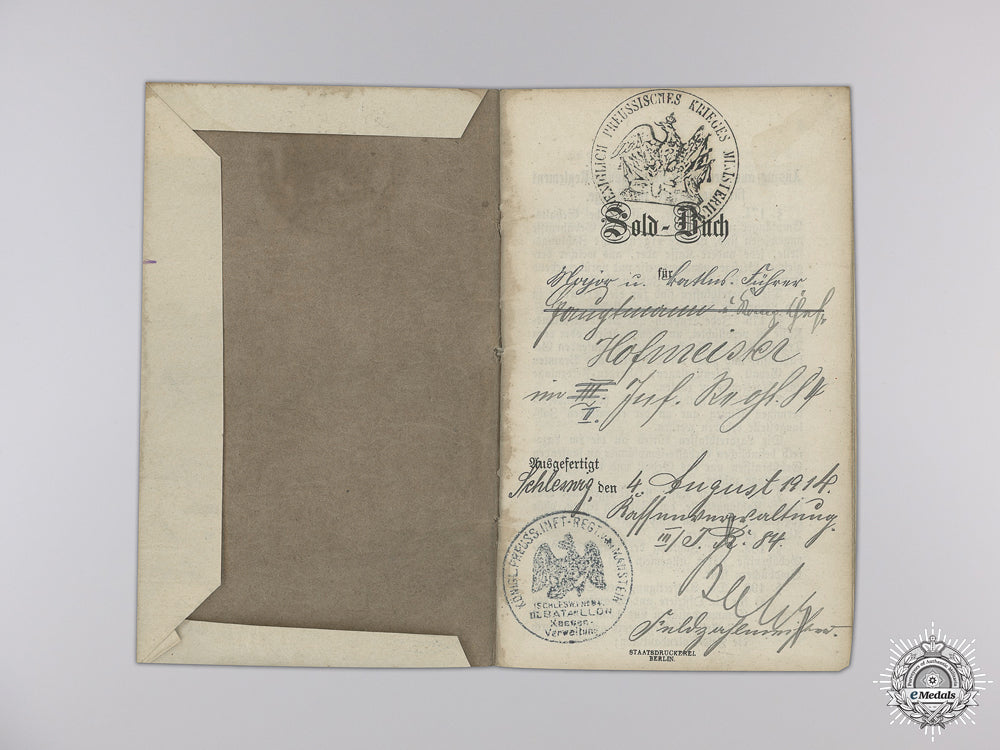 KOENIGLICH PREUSSISCHES KRIEGES MINISTERIUM
Sold-Buch
für
Major u. Batlns. Führer
Hauptmann u Komp. Chef
Hofmeister
im III. Inf. Regt. 84
II.
Ausgefertigt
Schleswig, den 4. August 1914.
Kassenverwaltung
III/I. R. 84.
Feldzahlmeister.
KÖNIGL. PREUSS. INFT-REGT. v. MANSTEIN
(SCHLESW.) No 84.
III. BATAILLON
Kassen-
Verwaltung
STAATSDRUCKEREI
BERLIN.
eMedals